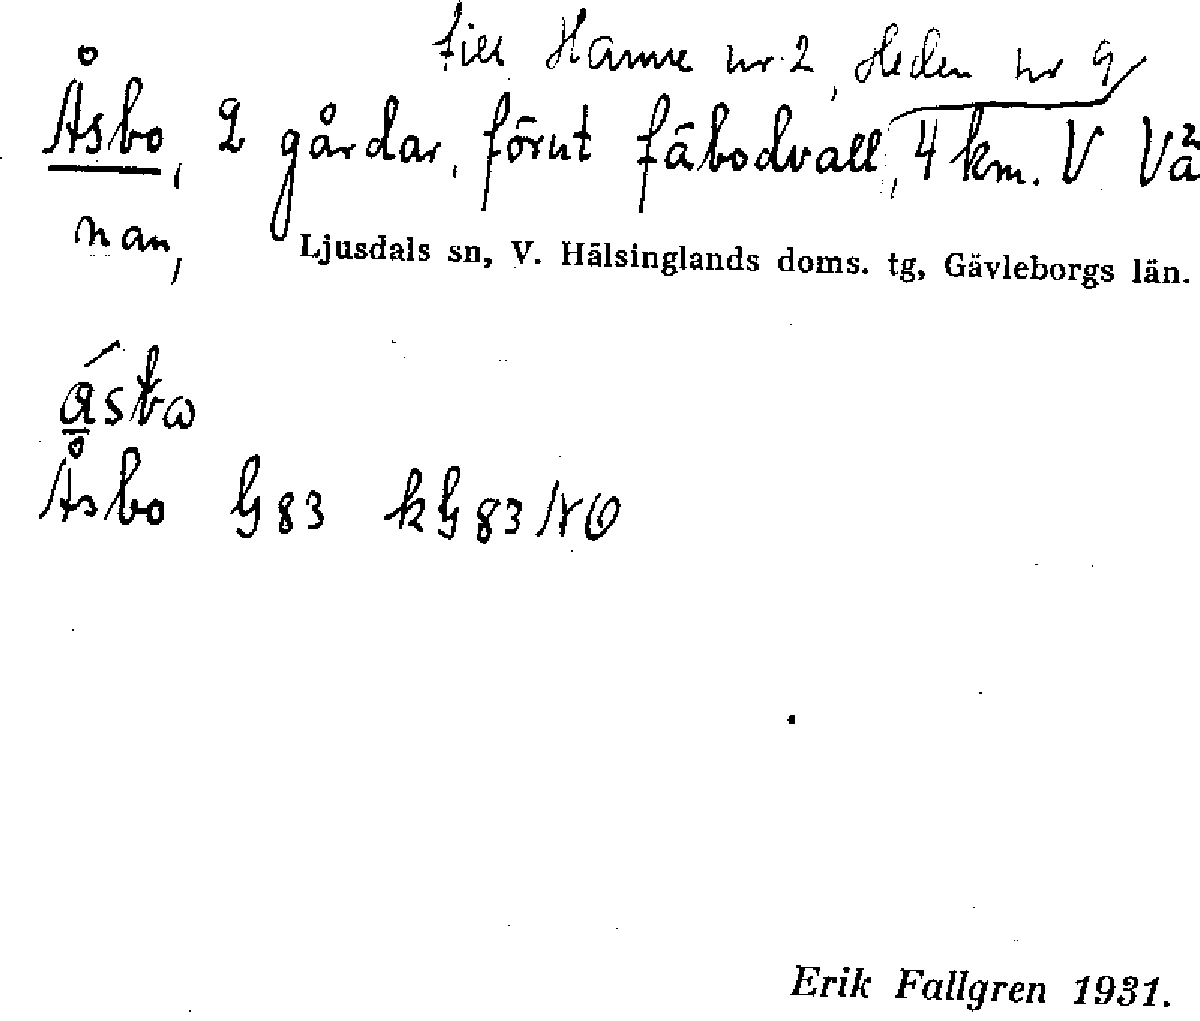 till Hamre nr 2, Heden nr 9
Åsbo, 2 gårdar, förut fäbodvall, 4 km. V Vä
nan,
Ljusdals sn, V. Hälsinglands doms. tg, Gävleborgs län.
Åsbo G 83 kG 83 NO
Erik Fallgren 1931.